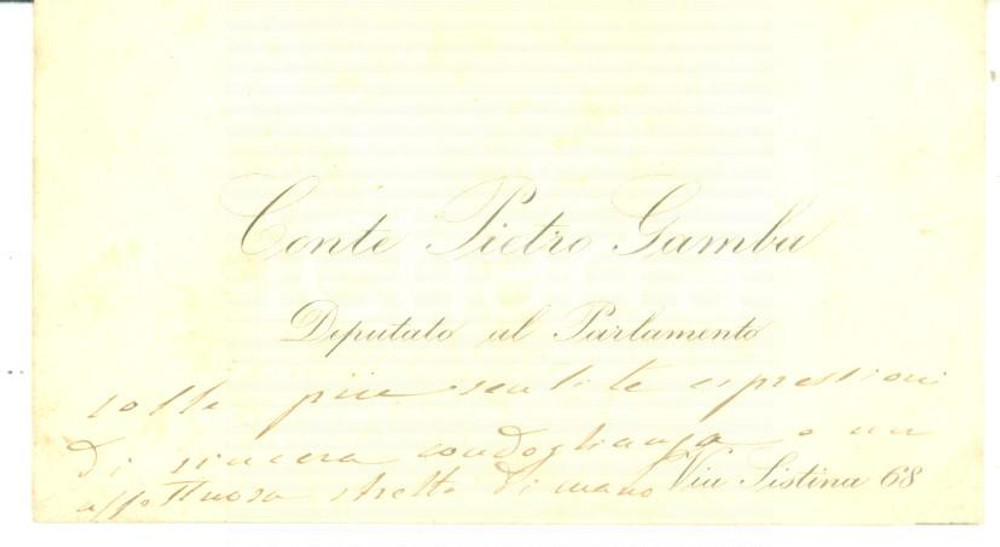 Conte Pietro Gamba
Deputato al Parlamento
colle più sentite espressioni
di sincera condoglianza e un
affettuosa stretta di mano
Via Sistina 68